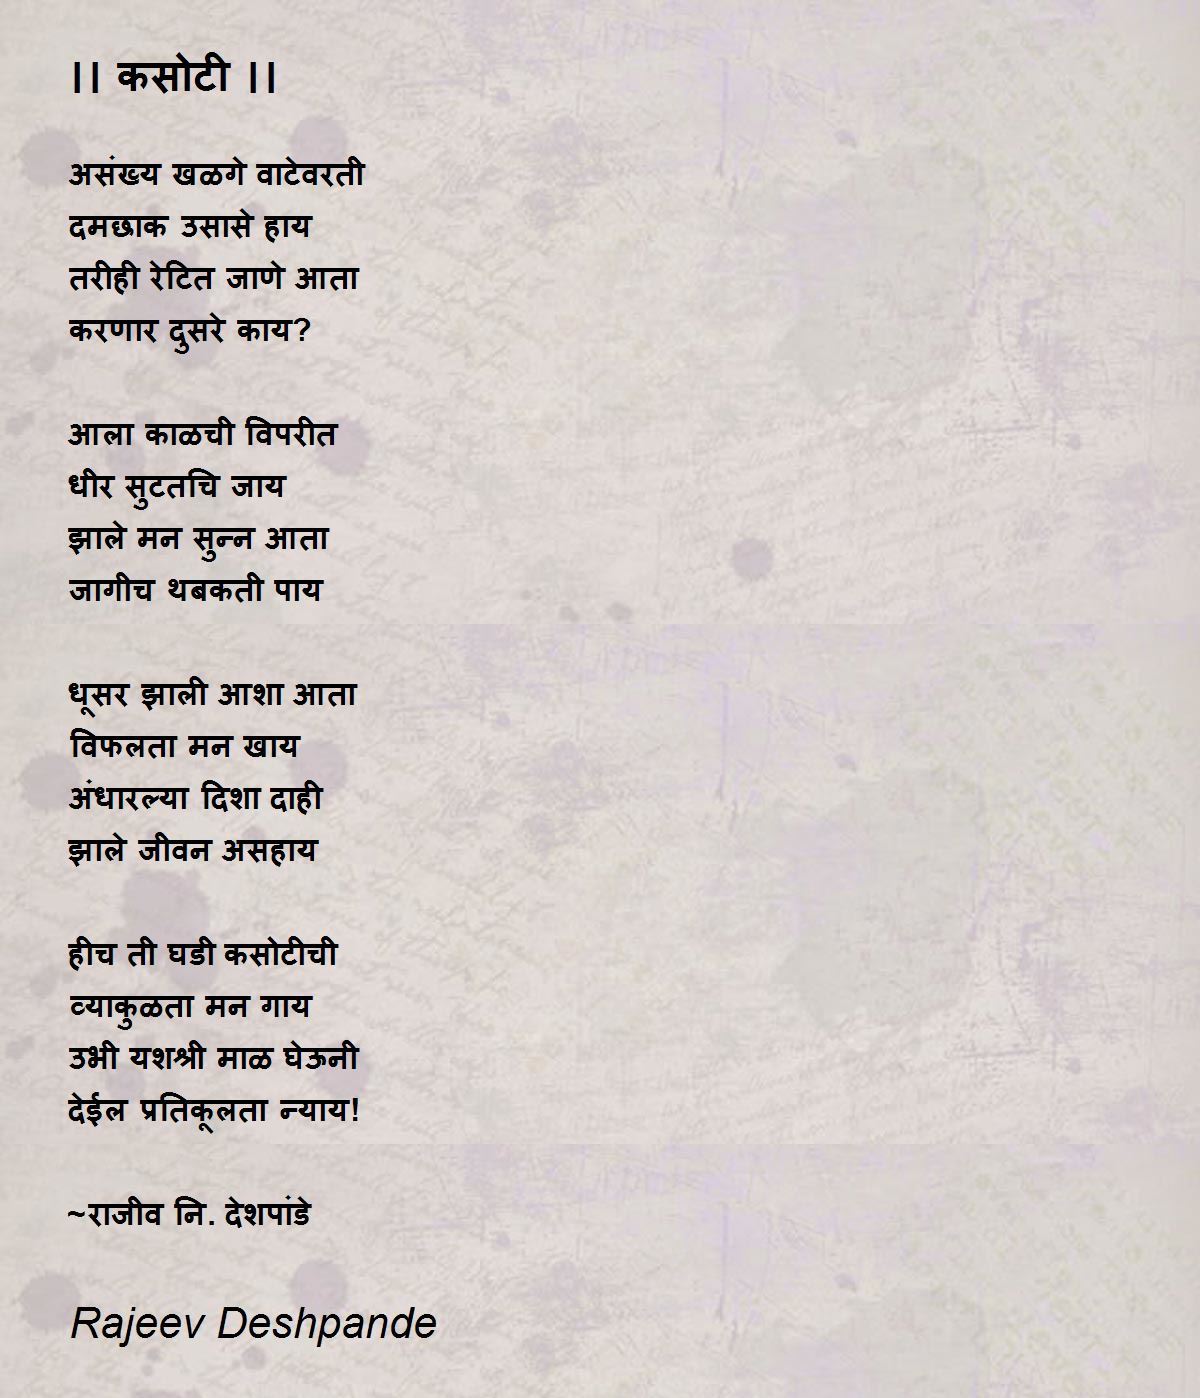 ।। कसोटी ।।
असंख्य खळगे वाटेवरती
दमछाक उसासे हाय
तरीही रेटित जाणे आता
करणार दुसरे काय?
आला काळची विपरीत
धीर सुटतचि जाय
झाले मन सुन्न आता
जागीच थबकती पाय
धूसर झाली आशा आता
विफलता मन खाय
अंधारल्या दिशा दाही
झाले जीवन असहाय
हीच ती घडी कसोटीची
व्याकुळता मन गाय
उभी यशश्री माळ घेऊनी
देईल प्रतिकूलता न्याय!
~राजीव नि. देशपांडे
Rajeev Deshpande